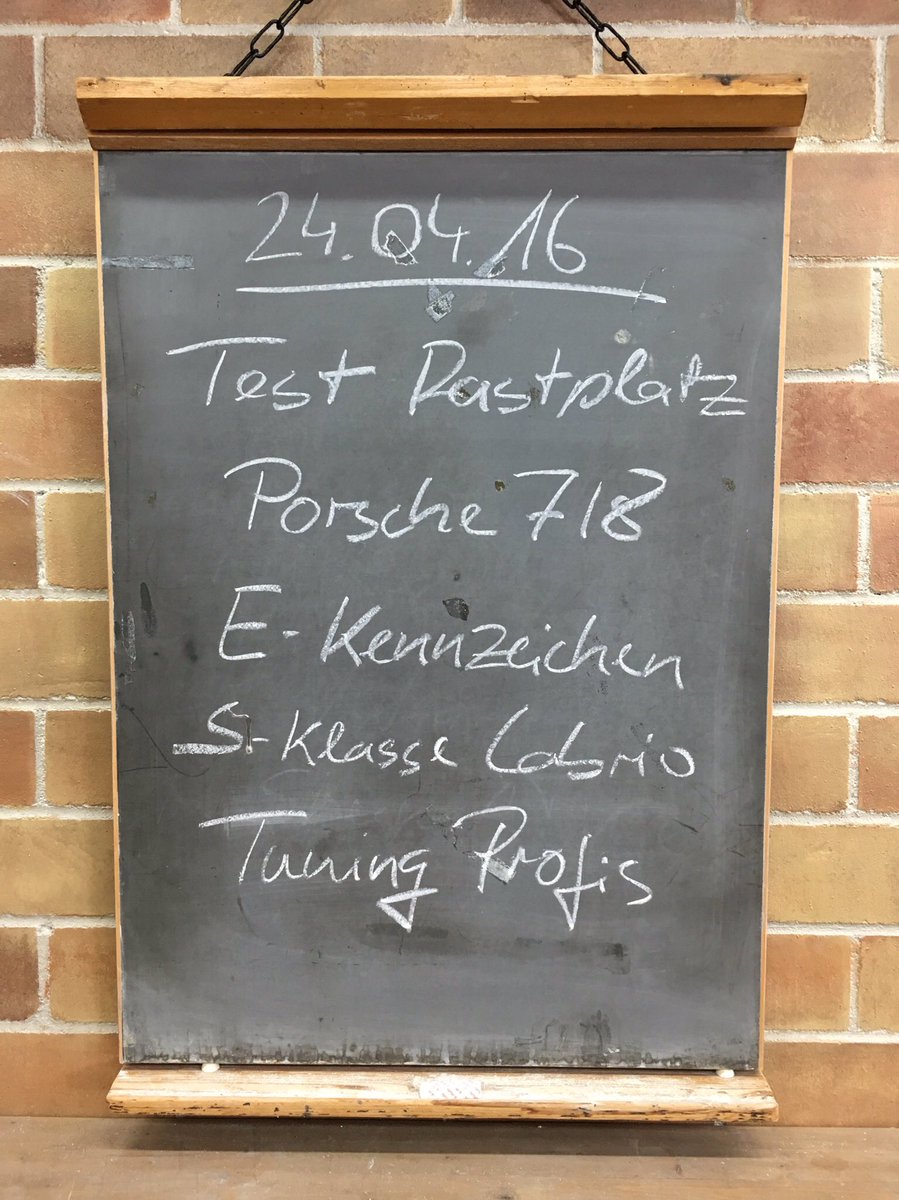 24.04.16
Test Rastplatz
Porsche 718
E-Kennzeichen
S-Klasse Cabrio
Tuning Profis